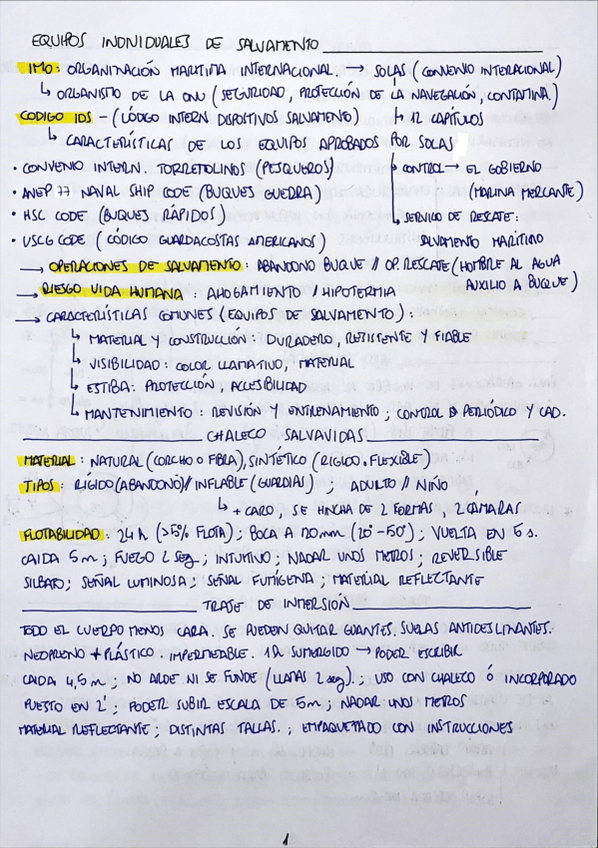 EQUIPOS INDIVIDUALES DE SALVAMENTO
IMO: ORGANIZACIÓN MARÍTIMA INTERNACIONAL. → SOLAS (CONVENIO INTERNACIONAL)
↳ ORGANISMO DE LA ONU (SEGURIDAD, PROTECCIÓN DE LA NAVEGACIÓN, CONTAMINA.)
↳ 12 CAPÍTULOS
CODIGO IDS - (CÓDIGO INTERN DISPOSITIVOS SALVAMENTO)
↳ CARACTERÍSTICAS DE LOS EQUIPOS APROBADOS POR SOLAS
• CONVENIO INTERN. TORREMOLINOS (PESQUEROS)
• ANEP 77 NAVAL SHIP CODE (BUQUES GUERRA)
• HSC CODE (BUQUES RÁPIDOS)
• USCG CODE (CÓDIGO GUARDACOSTAS AMERICANOS)
↳ CONTROL → EL GOBIERNO
(MARINA MERCANTE)
↳ SERVICIO DE RESCATE:
SALVAMENTO MARÍTIMO
→ OPERACIONES DE SALVAMENTO: ABANDONO BUQUE // OP. RESCATE (HOMBRE AL AGUA
AUXILIO A BUQUE)
→ RIESGO VIDA HUMANA: AHOGAMIENTO / HIPOTERMIA
→ CARACTERÍSTICAS COMUNES (EQUIPOS DE SALVAMENTO):
↳ MATERIAL Y CONSTRUCCIÓN: DURADERO, RESISTENTE Y FIABLE
↳ VISIBILIDAD: COLOR LLAMATIVO, MATERIAL
↳ ESTIBA: PROTECCIÓN, ACCESIBILIDAD
↳ MANTENIMIENTO: REVISIÓN Y ENTRENAMIENTO; CONTROL PERIÓDICO Y CAD.
CHALECO SALVAVIDAS
MATERIAL: NATURAL (CORCHO O FIBRA), SINTÉTICO (RIGIDO, FLEXIBLE)
TIPOS: RÍGIDO (ABANDONO) // INFLABLE (GUARDIAS); ADULTO // NIÑO
↳ + CARO, SE HINCHA DE 2 FORMAS, 2 CÁMARAS
FLOTABILIDAD: 24 h (>5% FLOTA); BOCA A 120mm (20°-50°); VUELTA EN 5 s.
CAIDA 5m; FUEGO 2 seg; INTUITIVO; NADAR UNOS METROS; REVERSIBLE
SILBATO; SEÑAL LUMINOSA; SEÑAL FUMÍGENA; MATERIAL REFLECTANTE
TRAJE DE INMERSIÓN
TODO EL CUERPO MENOS CARA. SE PUEDEN QUITAR GUANTES. SUELAS ANTIDESLIZANTES.
NEOPRENO + PLÁSTICO. IMPERMEABLE. 1h SUMERGIDO → PODER ESCRIBIR
CAIDA 4,5m; NO ARDE NI SE FUNDE (LLAMAS 2 seg).; USO CON CHALECO Ó INCORPORADO
PUESTO EN 2'; PODER SUBIR ESCALA DE 5m; NADAR UNOS METROS
MATERIAL REFLECTANTE; DISTINTAS TALLAS.; EMPAQUETADO CON INSTRUCCIONES
1